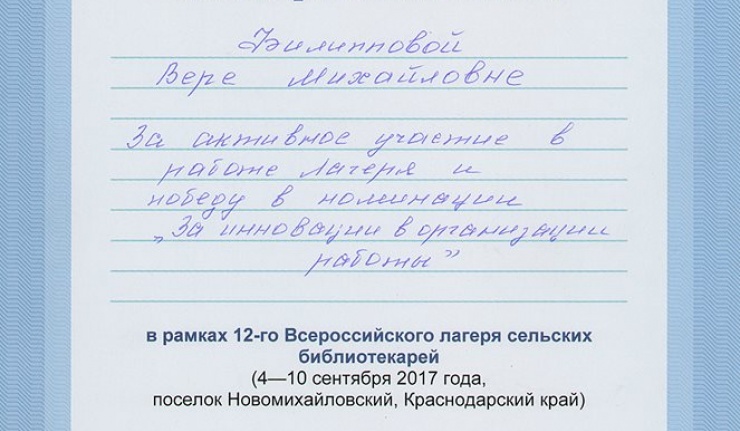 Филипповой
Вере Михайловне
За активное участие в
работе Лагеря и
победу в номинации
„За инновации в организации
работы"
в рамках 12-го Всероссийского лагеря сельских
библиотекарей
(4—10 сентября 2017 года,
поселок Новомихайловский, Краснодарский край)